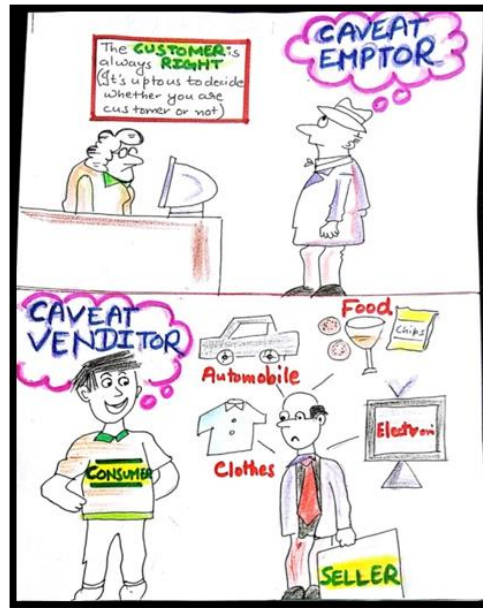 The CUSTOMER is
always RIGHT
(It's upto us to decide
whether you are
customer or not)
CAVEAT
EMPTOR
CAVEAT
VENDITOR
CONSUMER
Automobile
Food
Chips
Clothes
Electroni
SELLER